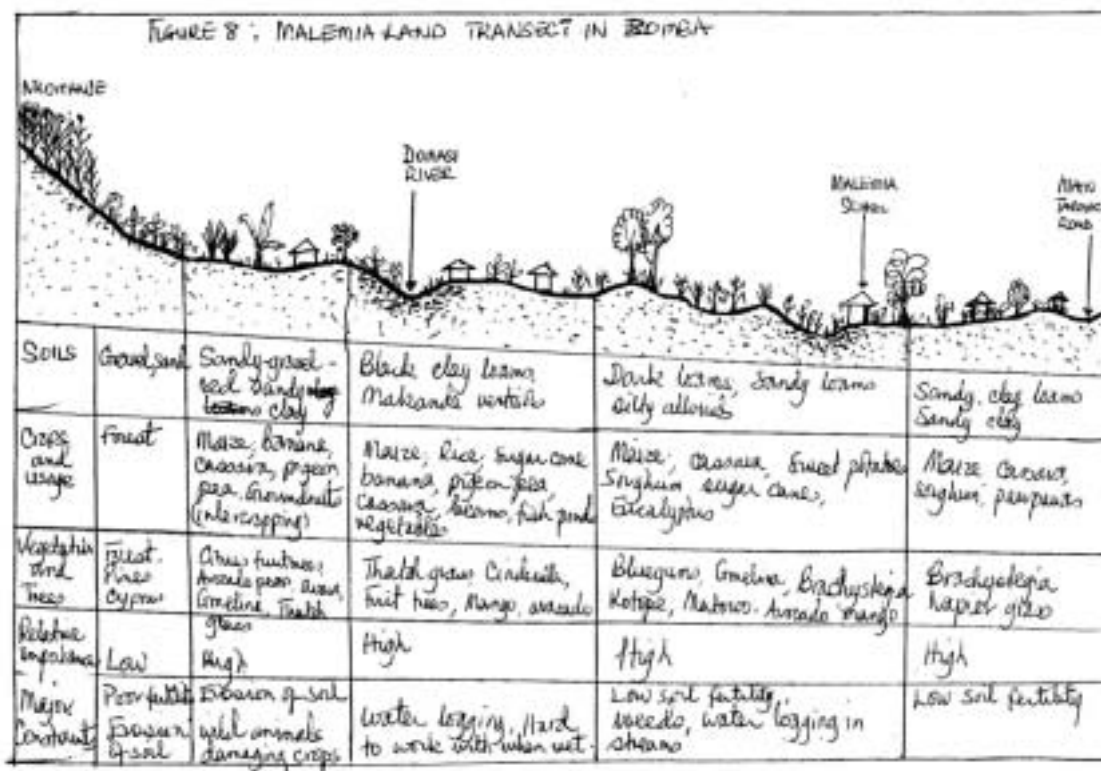 FIGURE 8: MALEMIA LAND TRANSECT IN ZOMBA
NKOMANJE
DOMASI
RIVER
MALEMIA
SCHOOL
MAIN
TARMAC
ROAD
SOILS
Gravel, sand
Sandy-gravel-
red sandy
clay
Black clay loams
Makande
Dark loams, Sandy loams
silty
Sandy, clay loams
Sandy clay
Crops
and
usage
Forest
Maize, banana,
cassava, pigeon
pea, Groundnuts
(intercropping)
Maize, Rice, Sugar cane
banana, pigeon pea,
Cassava, fish ponds
vegetables
Maize, cassava, Sweet potatoes
Sorghum, sugar canes,
Eucalyptus
Maize, Cassava,
sorghum,
Vegetation
and
Trees
Forest.
Pines
Cyprus
Citrus fruit trees,
Avocado pears,
Gmelina, Thatch
grass
Thatch grass
Fruit trees, Mango, avocado
Bluegums, Gmelina, Brachystegia
Avocado mango
Brachystegia
napier grass
Relative
importance
Low
High
High
High
High
Major
Constraints
Poor fertility
Erosion
of soil
Erosion of soil
wild animals
damaging crops
Water logging, Hard
to work with when wet.
Low soil fertility,
weeds, water logging in
streams
Low soil fertility